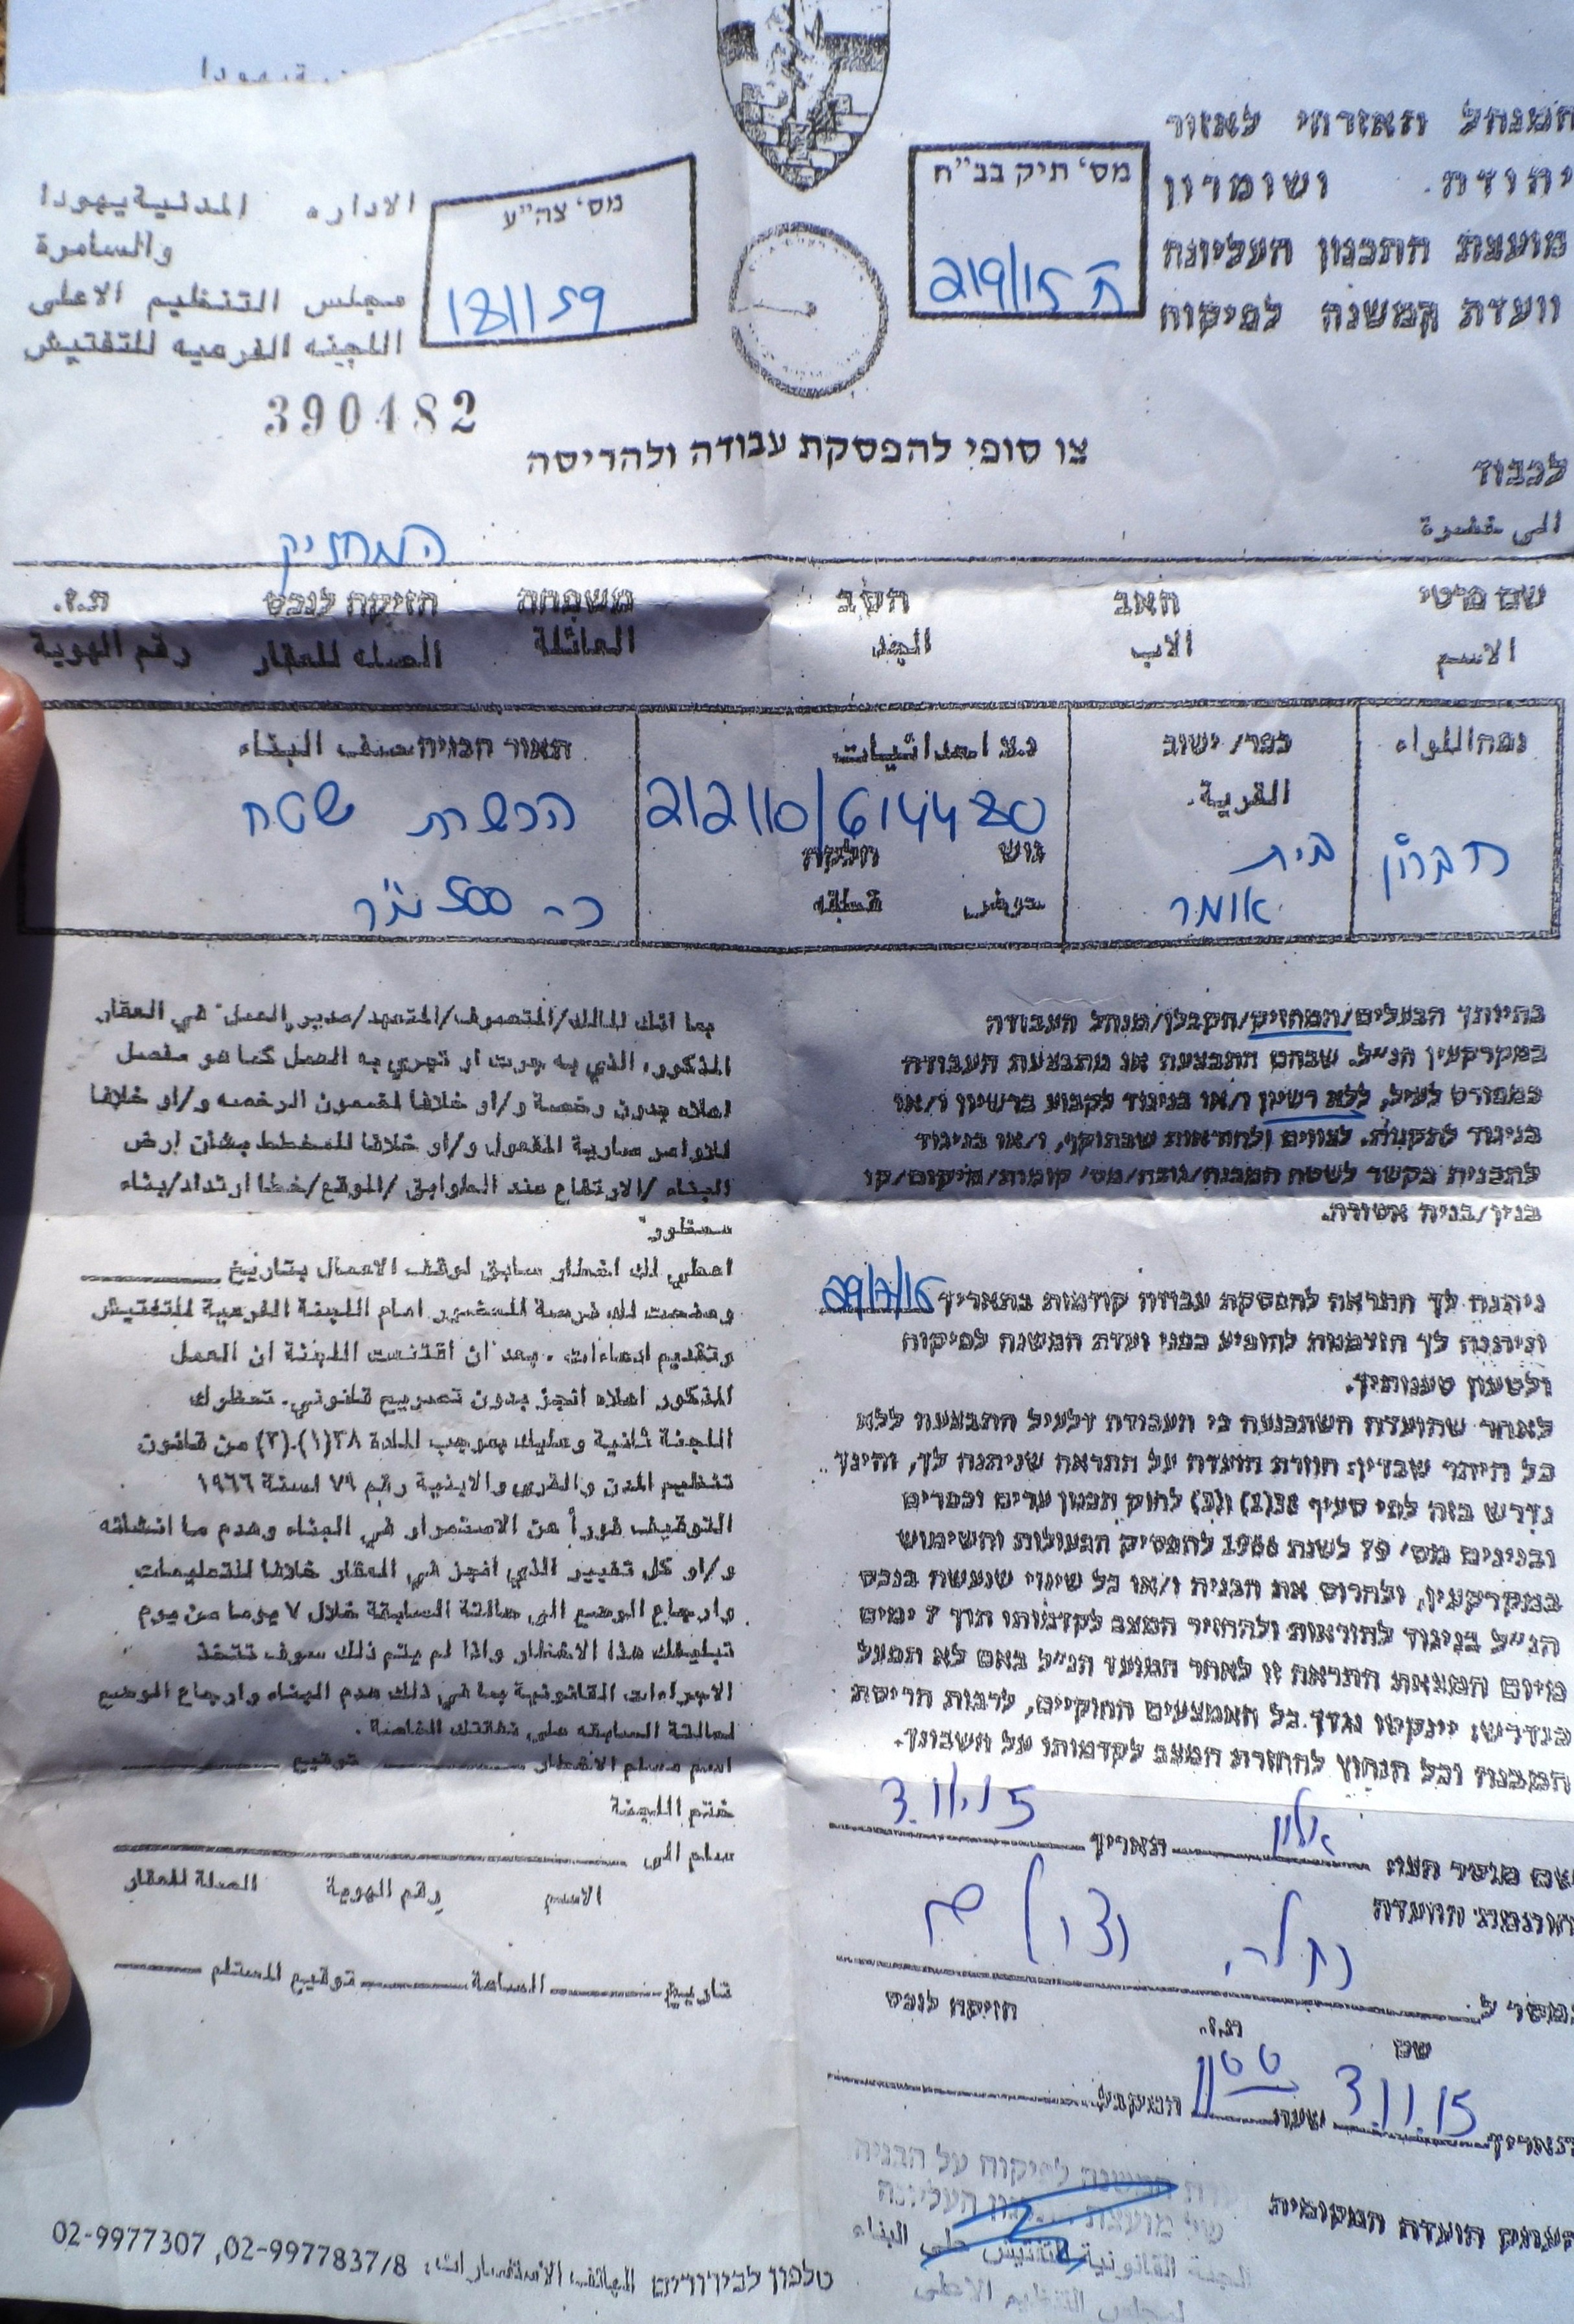 המנהל האזרחי לאזור
יהודה ושומרון
מועצת התכנון העליונה
וועדת המשנה לפיקוח
מס' תיק בב"ח
ה 219/15
מס' צה"ע
18/159
الاداره المدنية يهودا
والسامرة
مجلس التنظيم الاعلى
اللجنه الفرعيه للتفتيش
390482
צו סופי להפסקת עבודה ולהריסה
לכבוד
الى حضرة
המחזיק
שם פרטי האב הסב משפחה הזיקה לנכס ת.ז.
الاسم الاب الجد العائلة الصله للعقار رقم الهوية
נפה اللواء
חברון
כפר/ישוב
القرية
בית
אומר
נ.צ احداثيات
212110/614480
גוש חלקה
حوض قطعه
תאור הבניה وصف البناء
הכשרת שטח
כ- 500 מ"ר
בהיותך הבעלים/המחזיק/הקבלן/מנהל העבודה
במקרקעין הנ"ל. שבהם התבצעה או מתבצעת העבודה
כמפורט לעיל, ללא רשיון ו/או בניגוד לקבוע ברשיון ו/או
בניגוד לתקנות, לצווים ולהוראות שבתוקף, ו/או בניגוד
לתכנית בקשר לשטח המבנה/גובה/מס' קומות/מיקום/קו
בנין/בניה אסורה.
ניתנה לך התראה להפסקת עבודה קודמות בתאריך 29/7/15
וניתנה לך הזדמנות להופיע בפני ועדת המשנה לפיקוח
ולטעון טענותיך.
לאחר שהועדה השתכנעה כי העבודה דלעיל התבצעה ללא
כל היתר שבדין חוזרת הועדה על התראה שניתנה לך, והינך
נדרש בזה לפי סעיף 38(1) ו(3) לחוק תכנון ערים וכפרים
ובנינים מס' 79 לשנת 1966 להפסיק הפעולות והשימוש
במקרקעין, ולהרוס את הבניה ו/או כל שינוי שנעשה בנכס
הנ"ל בניגוד להוראות ולהחזיר המצב לקדמותו תוך 7 ימים
מיום המצאת התראה זו לאחר המועד הנ"ל באם לא תפעל
כנדרש, יינקטו נגדך כל האמצעים החוקיים, לרבות הריסת
המבנה וכל הנחוץ להחזרת המצב לקדמותו על חשבונך.
שם מוסר הצו אילון תאריך 3.11.15
חותמת הועדה
נמסר ל
שם ת.ז. הזיקה לנכס
תאריך 3.11.15 שעה 11 00 המקבל
העתק הועדה המקומית
המשנה לפיקוח על הבניה
של מועצת התכנון העליונה
اللجنة القانونية للتفتيش على البناء
لمجلس التنظيم الاعلى
بما انك المالك/المتصرف/المتعهد/مدير العمل في العقار
المذكور، الذي به جرت او تجري به العمل كما هو مفصل
اعلاه بدون رخصة و/او خلافا لمضمون الرخصه و/او خلافا
للاوامر سارية المفعول و/او خلافا للمخطط بشأن ارض
البناء/الارتفاع عدد الطوابق/الموقع/خط ارتداد/بناء
محظور
اعطي لك اخطار سابق لوقف الاعمال بتاريخ
ومنحت لك فرصة للحضور امام اللجنة الفرعية للتفتيش
وتقديم ادعاءات. بعد ان اقتنعت اللجنة ان العمل
المذكور اعلاه انجز بدون تصريح قانوني. تحظرك
اللجنة ثانية وعليك بموجب المادة ٣٨(١).(٣) من قانون
تنظيم المدن والقرى والابنية رقم ٧٩ لسنة ١٩٦٦
التوقيف فوراً عن الاستمرار في البناء وهدم ما انشأته
و/او كل تغيير الذي انجز في العقار خلافا للتعليمات
وارجاع الوضع الى حالتة السابقة خلال ٧ يوما من يوم
تبليغك هذا الاخطار واذا لم يتم ذلك سوف تتخذ
الاجراءات القانونية بما في ذلك هدم البناء وارجاع الوضع
لحالتة السابقه على نفقتك الخاصة.
اسم مسلم الاخطار توقيع
ختم اللجنة
سلم الى
الاسم رقم الهوية الصلة للعقار
تاريخ الساعة توقيع المستلم
טלפון לבירורים الهاتف الاستفسارات: 02-9977837/8, 02-9977307